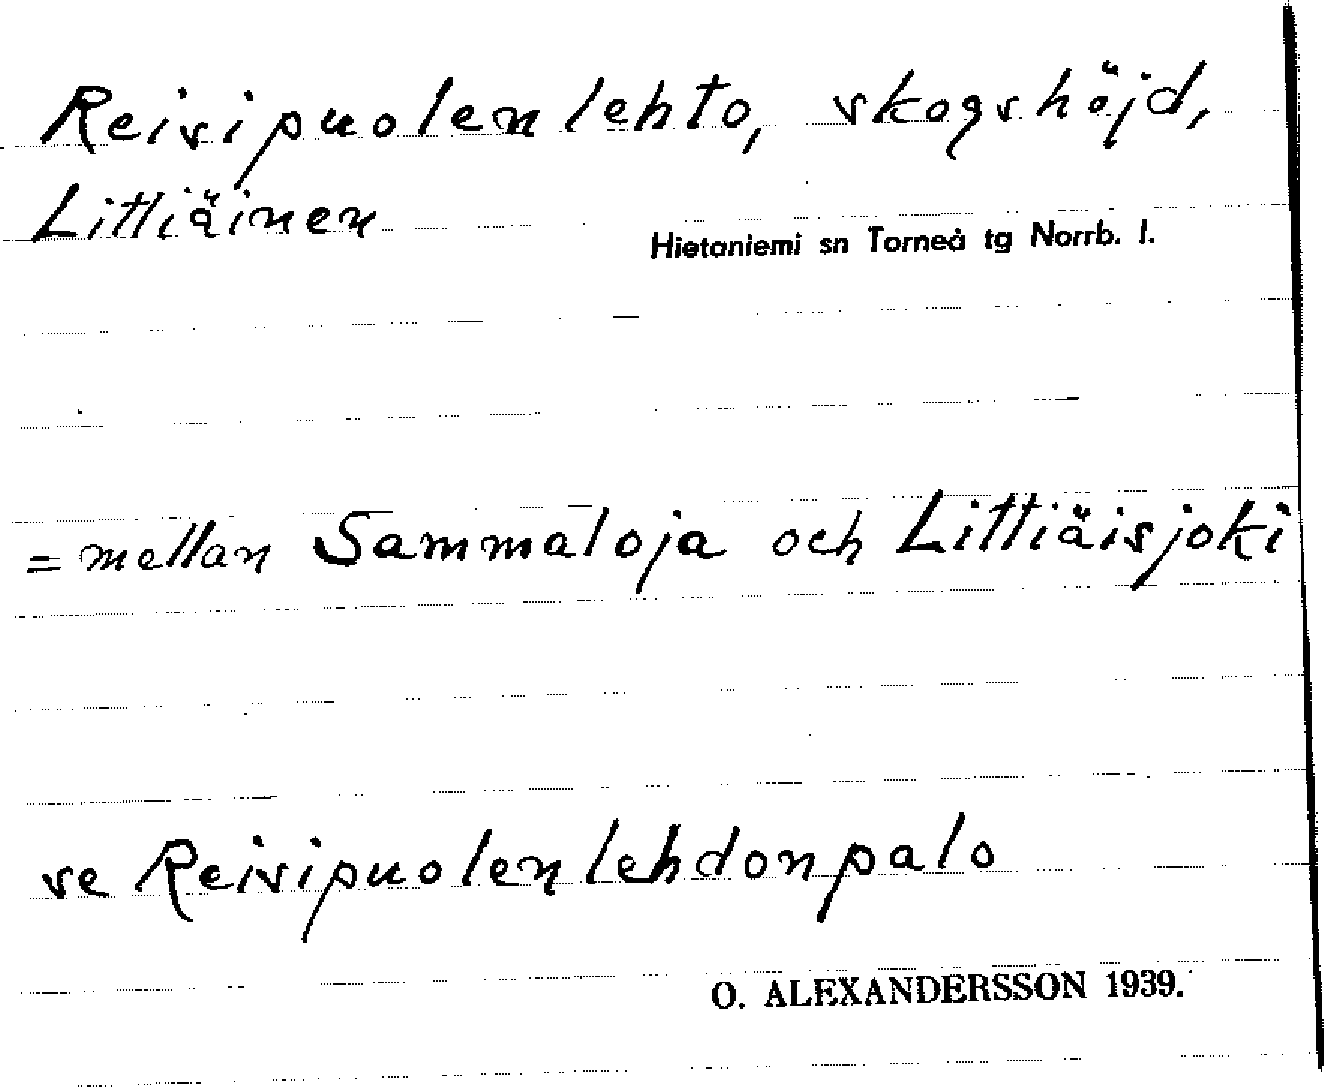 Reisipuolenlehto, skogshöjd,
Littiäinen
Hietaniemi sn Torneå tg Norrb. l.
= mellan Sammaloja och Littiäisjoki
se Reisipuolenlehdonpalo
O. ALEXANDERSSON 1939.